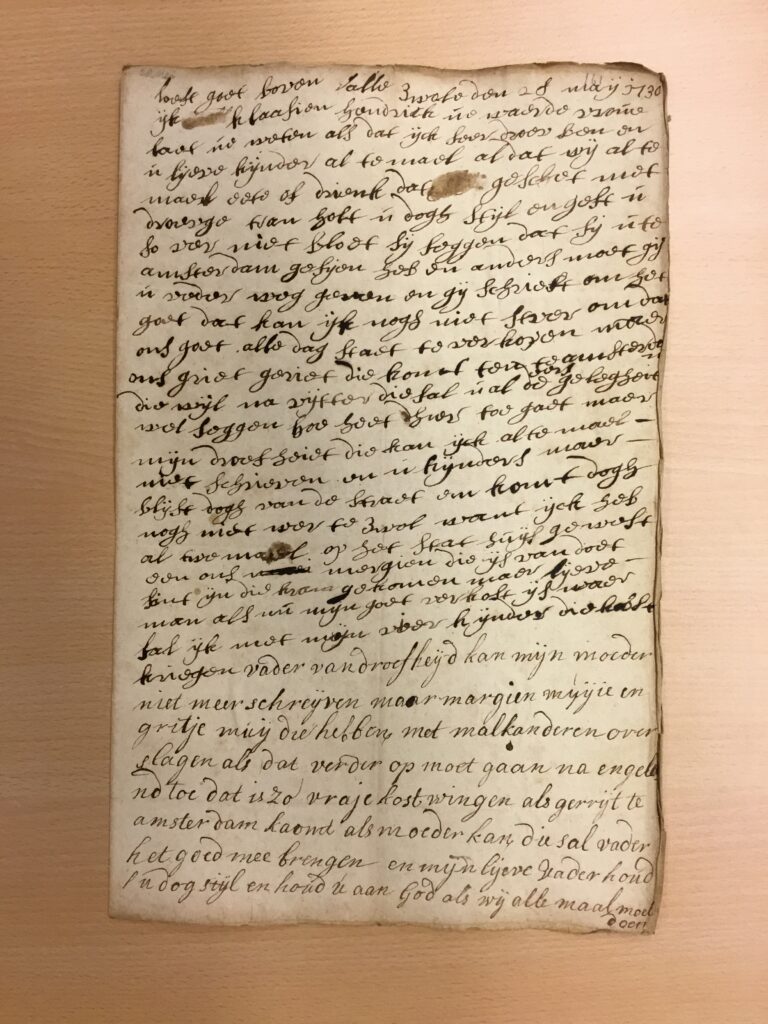 looft goet boven alle Zwole den 28 may 1730
ijk klaasien hendrick ue waerde vrouwe
laet ue weten als dat ijck seer droev ben en
u ljeve kijnder al te mael al dat wij al te
mael eete of drienk dat geschiet met
droevge tran holt u dogh stijl en geft u
so ver niet bloet sij seggen dat sij u te
amsterdam gesijen heb en anders moet gij
u veder weg geven en gij schrieft om het
goet dat kan ijk nogh niet stver om dat
ons goet alle dag staet te verkopen maer
ons griet geriet die komt ten te amsterda
die wijl na rijtter die sal u al de gelegheit
wel seggen hoe heet hier toe gaet maer
mijn droefheiet die kan ijck al te mael
niet schrieven en u kijnders maer
blijft dogh van de straet en komt dogh
nogh niet wer te Zwol want ijck heb
al twe mael op het stat huijs gewest
een ons mergien die ijs van doet
sint ijn die kram gekomen maer ljeve
man als nu mijn goet verkoft ijs waer
sal ijk met mijn veer kijnder die kost
kriegen vader van droefheyd kan mijn moeder
niet meer schreijven maar margien muijie en
gritje muij die hebben met malkanderen over
slagen als dat verder op moet gaan na engela
nd toe dat is zo vraje kost wingen als gerrijt te
amsterdam kaomd als moeder kan die sal vader
het goed mee brengen en mijn lijeve vader houd
u dog stijl en houd u aan God als wij alle maal moet
doen